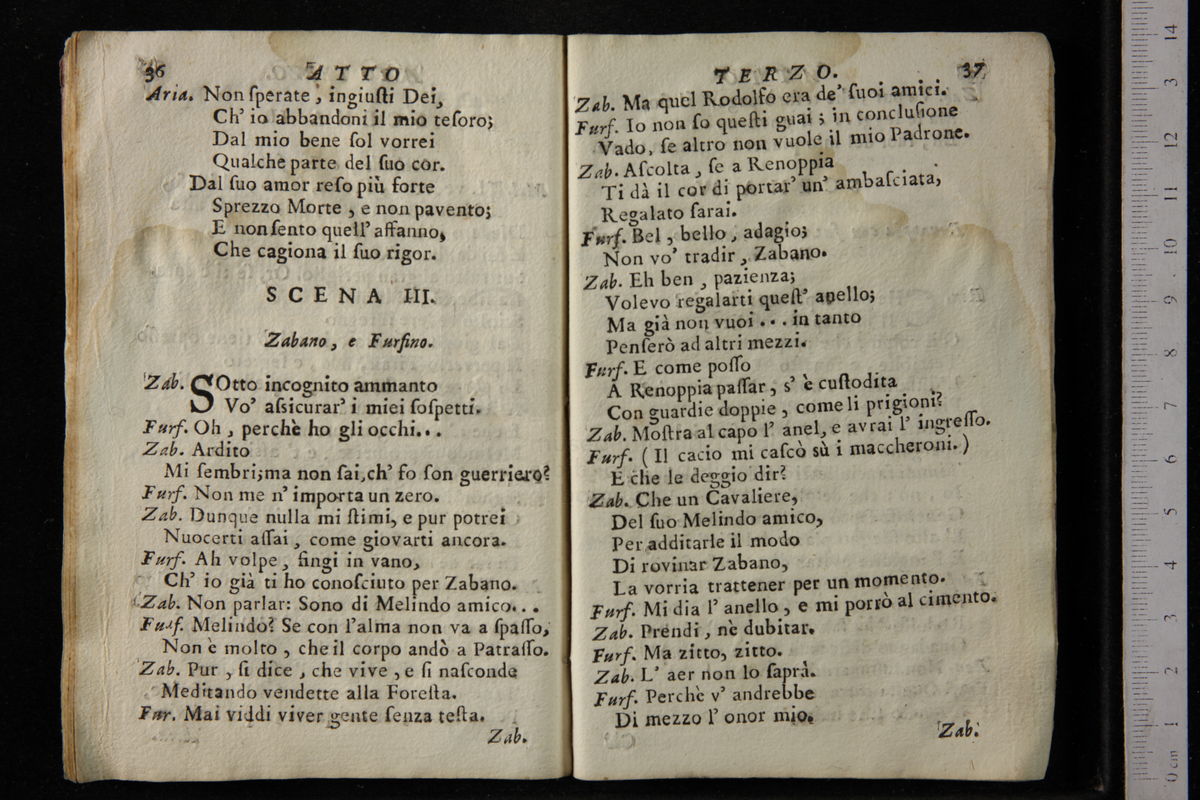 36 ATTO
Aria. Non ſperate, ingiuſti Dei,
Ch' io abbandoni il mio teſoro;
Dal mio bene ſol vorrei
Qualche parte del ſuo cor.
Dal ſuo amor reſo più forte
Sprezzo Morte, e non pavento;
E non ſento quell' affanno,
Che cagiona il ſuo rigor.
SCENA III.
Zabano, e Furfino.
Zab. SOtto incognito ammanto
Vo' aſsicurar' i miei ſoſpetti.
Furf. Oh, perchè ho gli occhi...
Zab. Ardito
Mi ſembri; ma non ſai, ch' ſo ſon guerriero?
Furf. Non me n' importa un zero.
Zab. Dunque nulla mi ſtimi, e pur potrei
Nuocerti aſſai, come giovarti ancora.
Furf. Ah volpe, fingi in vano,
Ch' io già ti ho conoſciuto per Zabano.
Zab. Non parlar: Sono di Melindo amico...
Furf. Melindo? Se con l'alma non va a ſpaſſo,
Non è molto, che il corpo andò a Patraſſo.
Zab. Pur, ſi dice, che vive, e ſi naſconde
Meditando vendette alla Foreſta.
Fur. Mai viddi viver gente ſenza teſta.
Zab.
TERZO. 37
Zab. Ma quel Rodolfo era de' ſuoi amici.
Furf. Io non ſo queſti guai; in concluſione
Vado, ſe altro non vuole il mio Padrone.
Zab. Aſcolta, ſe a Renoppia
Ti dà il cor di portar' un' ambaſciata,
Regalato ſarai.
Furf. Bel, bello, adagio;
Non vo' tradir, Zabano.
Zab. Eh ben, pazienza;
Volevo regalarti queſt' anello;
Ma già non vuoi... in tanto
Penſerò ad altri mezzi.
Furf. E come poſſo
A Renoppia paſſar, s' è cuſtodita
Con guardie doppie, come li prigioni?
Zab. Moſtra al capo l' anel, e avrai l' ingreſſo.
Furf. (Il cacio mi caſcò sù i maccheroni.)
E che le deggio dir?
Zab. Che un Cavaliere,
Del ſuo Melindo amico,
Per additarle il modo
Di rovinar Zabano,
La vorria trattener per un momento.
Furf. Mi dia l' anello, e mi porrò al cimento.
Zab. Prendi, nè dubitar.
Furf. Ma zitto, zitto.
Zab. L' aer non lo ſaprà.
Furf. Perchè v' andrebbe
Di mezzo l' onor mio.
Zab.
14
3
12
11
10
9
8
7
6
5
4
3
2
1
0 cm